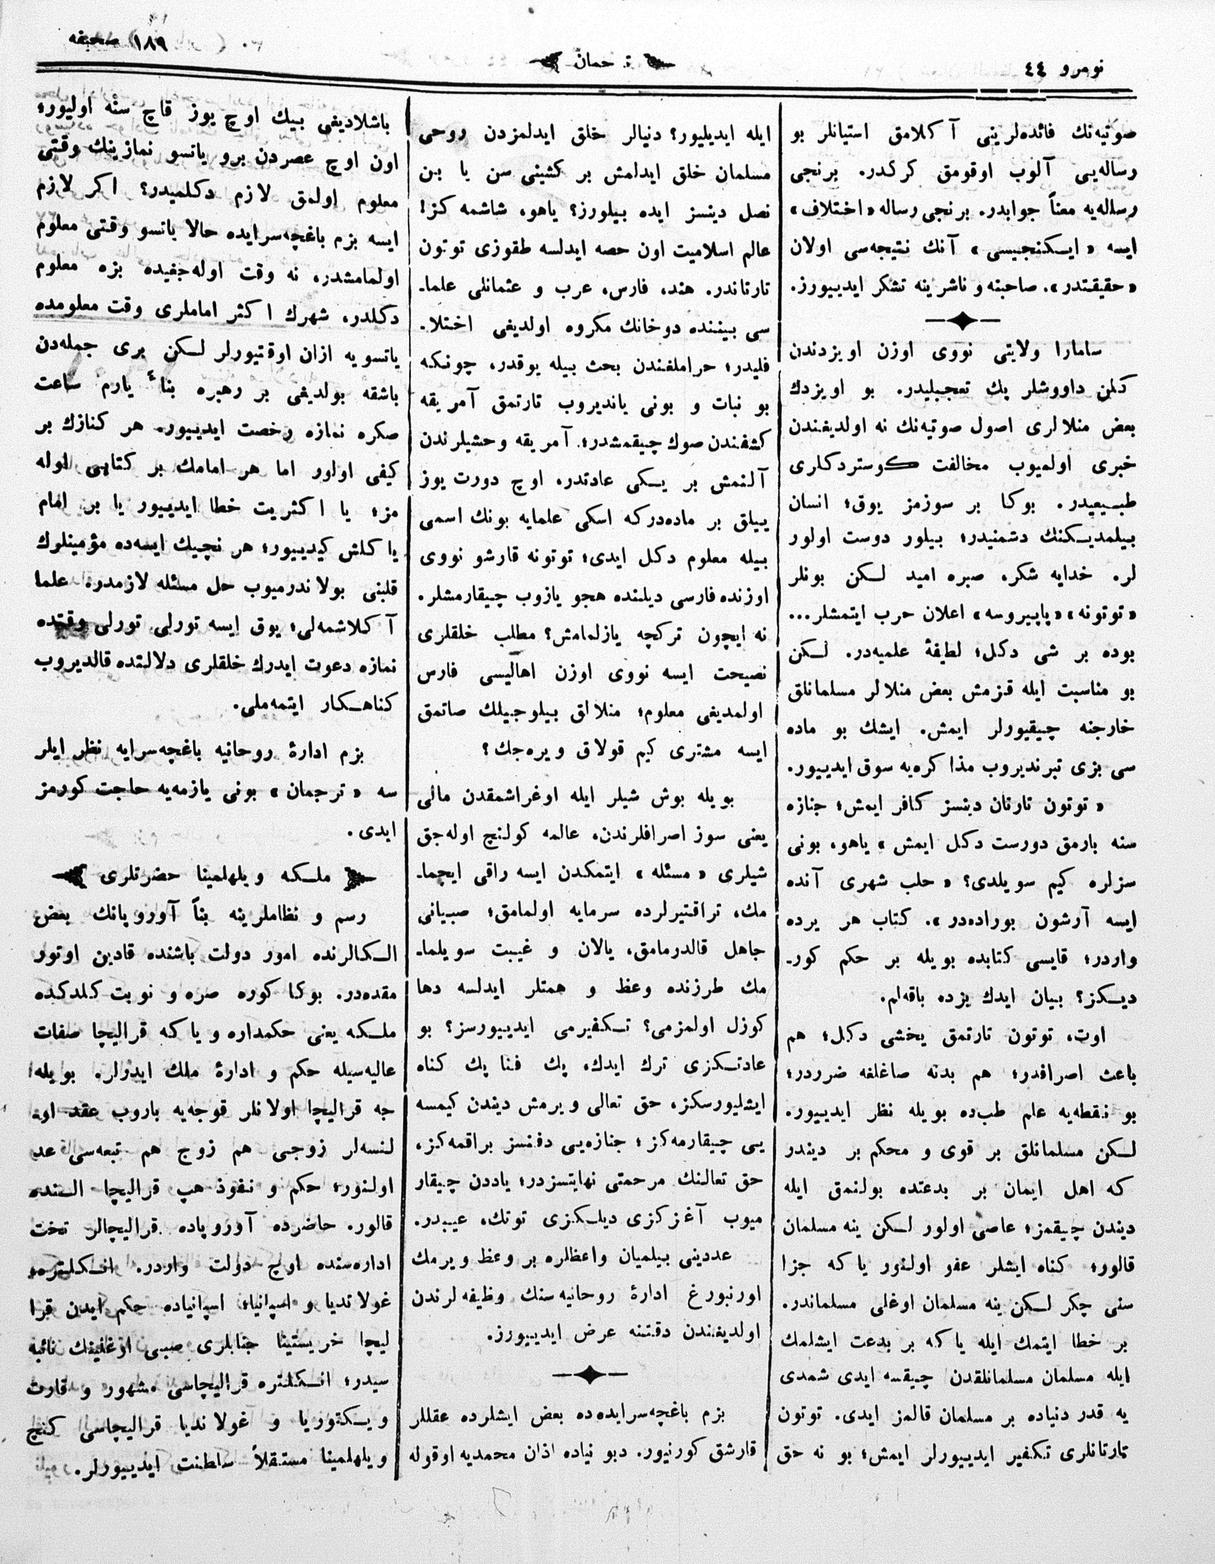 نومرو ٤٤
ترجمان
١٨٩ صحيفه
صوتيه‌نك فائده‌لرينى آكلامق استيانلر بو
رساله‌يى آلوب اوقومق كركدر. برنجى
رساله‌يه معناً جوابدر. برنجى رساله «اختلاف»
ايسه «ايسكنجيسى» آنك نتيجه‌سى اولان
«حقيقتدر». صاحبنه و ناشرينه تشكر ايدييورز.
سامارا ولايتى نووى اوزن اويزدندن
كلن داووشلر پك تعجبليدر. بو اويزدك
بعض منلالرى اصول صوتيه‌نك نه اولديغندن
خبرى اولميوب مخالفت كوستردكلرى
طبيعيدر. بوكا بر سوزمز يوق؛ انسان
بيلمديكنك دشمنيدر؛ بيلور دوست اولور
لر. خدايه شكر، صبره اميد لكن بونلر
«توتونه» «پاپيروسه» اعلان حرب ايتمشلر...
بوده بر شى دكل؛ لطيفهٔ علميه‌در. لكن
بو مناسبت ايله قزمش بعض منلالر مسلمانلق
خارجنه چيقيورلر ايمش. ايشك بو ماده
سى بزى تيرنديروب مذاكره‌يه سوق ايدييور.
«توتون تارتان دينسز كافر ايمش؛ جنازه
سنه بارمق دورست دكل ايمش» ياهو، بونى
سزلره كيم سويلدى؟ «حلب شهرى آنده
ايسه آرشون بوراده‌در». كتاب هر يرده
واردر؛ قايسى كتابده بويله بر حكم كور-
ديكز؟ بيان ايدك بزده باقه‌لم.
اوت، توتون تارتمق يخشى دكل؛ هم
باعث اصرافدر؛ هم بدنه صاغلغه ضرردر؛
بو نقطه‌يه علم طبده بويله نظر ايدييور.
لكن مسلمانلق بر قوى و محكم بر ديندر
كه اهل ايمان بر بدعتده بولنمق ايله
ديندن چيقمز؛ عاصى اولور لكن ينه مسلمان
قالور؛ كناه ايشلر عفو اولنور ياكه جزا
سنى چكر لكن ينه مسلمان اوغلى مسلماندر.
بر خطا ايتمك ايله ياكه بر بدعت ايشلمك
ايله مسلمان مسلمانلقدن چيقسه ايدى شمدى
يه قدر دنياده بر مسلمان قالمز ايدى. توتون
تارتانلرى تكفير ايدييورلر ايمش؛ بو نه حق
ايله ايديليور؟ دنيالر خلق ايدلمزدن روحى
مسلمان خلق ايدلمش بر كشينى سن يا بن
نصل دينسز ايده بيلورز؟ ياهو، شاشمه‌كز!
عالم اسلاميت اون حصه ايدلسه طقوزى توتون
تارتاندر. هند، فارس، عرب و عثمانلى علما-
سى بيننده دوخانك مكروه اولديغى اختلا-
فليدر؛ حراملغندن بحث بيله يوقدر، چونكه
بو نبات و بونى يانديروب تارتمق آمريقه
كشفندن صوك چيقمشدر؛ آمريقه وحشيلرندن
آلنمش بر يكى عادتدر، اوچ دورت يوز
ييلق بر ماده‌دركه اسكى علمايه بونك اسمى
بيله معلوم دكل ايدى؛ توتونه قارشو نووى
اوزنده فارسى ديلنده هجو يازوب چيقارمشلر.
نه ايچون تركچه يازلمامش؟ مطلب خلقلرى
نصيحت ايسه نووى اوزن اهاليسى فارس
اولمديغى معلوم؛ منلالق بيلوجيلك صاتمق
ايسه مشترى كيم قولاق ويره‌جك؟
بويله بوش شيلر ايله اوغراشمقدن مالى
يعنى سوز اصرافلرندن، عالمه كولنچ اوله‌جق
شيلرى «مسئله» ايتمكدن ايسه راقى ايچما-
مك، تراقتيرلرده سرمايه اولمامق؛ صبيانى
جاهل قالدرمامق، يالان و غيبت سويلما-
مك طرزنده وعظ و همتلر ايدلسه دها
كوزل اولمزمى؟ تكفيرمى ايدييورسز؟ بو
عادتكزى ترك ايدك، پك فنا پك كناه
ايشليورسكز، حق تعالى ويرمش ديندن كيمسه
يى چيقارمه‌كز؛ جنازه‌يى دفنسز براقمه‌كز،
حق تعالنك مرحمتى نهايتسزدر؛ ياددن چيقار
ميوب آغزكزى ديلكزى توتك، عيبدر.
عددينى بيلميان واعظلره بر وعظ ويرمك
اورنبورغ ادارهٔ روحانيه‌سنك وظيفه‌لرندن
اولديغندن دقتنه عرض ايدييورز.
بزم باغچه‌سرايده‌ده بعض ايشلرده عقللر
قارشق كورنيور. دبو نياده اذان محمديه اوقوله
باشلاديغى بيك اوچ يوز قاچ سنه اوليور؛
اون اوچ عصردن برو ياتسو نمازينك وقتى
معلوم اولمق لازم دكلميدر؟ اكر لازم
ايسه بزم باغچه‌سرايده حالا ياتسو وقتى معلوم
اولمامشدر، نه وقت اوله‌جغيده بزه معلوم
دكلدر، شهرك اكثر اماملرى وقت معلومده
ياتسويه ازان اوقتيورلر لكن برى جمله‌دن
باشقه بولديغى بر رهبره بناءً يارم ساعت
صكره نمازه رخصت ايدييور. هر كنازك بر
كيفى اولور اما هر امامك بر كتابى اوله
مز؛ يا اكثريت خطا ايدييور يا بر امام
ياكلش كيدييور؛ هر نچيك ايسه‌ده مؤمينلرك
قلبنى بولاندرميوب حل مسئله لازمدر. علما
آكلاشمه‌لى؛ يوق ايسه تورلى تورلى وقتده
نمازه دعوت ايدرك خلقلرى دلالتده قالديروب
كناهكار ايتمه‌ملى.
بزم ادارهٔ روحانيه باغچه‌سرايه نظر ايلر
سه «ترجمان» بونى يازمه‌يه حاجت كورمز
ايدى.
ملكه ويلهلمينا حضرتلرى
رسم و نظاملرينه بناً آوروپانك بعض
الكالرنده امور دولت باشنده قادين اوتور
مقده‌در. بوكا كوره صره و نوبت كلدكده
ملكه يعنى حكمداره و ياكه قراليچا صفات
عاليه‌سيله حكم و ادارهٔ ملك ايدرلر. بويله
جه قراليچا اولانلر قوجه‌يه باروب عقد او-
لنسه‌لر زوجى هم زوج هم تبعه‌سى عد
اولنور؛ حكم و نفوذ هپ قراليچا النده
قالور. حاضرده آوروپاده قراليچالر تخت
اداره‌سنده اوچ دولت واردر. انكلتره،
غولانديا و اسپانيا؛ اسپانياده حكم ايدن قرا
ليچا خريستينا جنابلرى صبى اوغلينك نائبه
سيدر؛ انكلتره قراليچاسى مشهور و قارت
ويكتوريا و غولانديا قراليچاسى كنچ
ويلهلمينا مستقلاً سلطنت ايدييورلر.